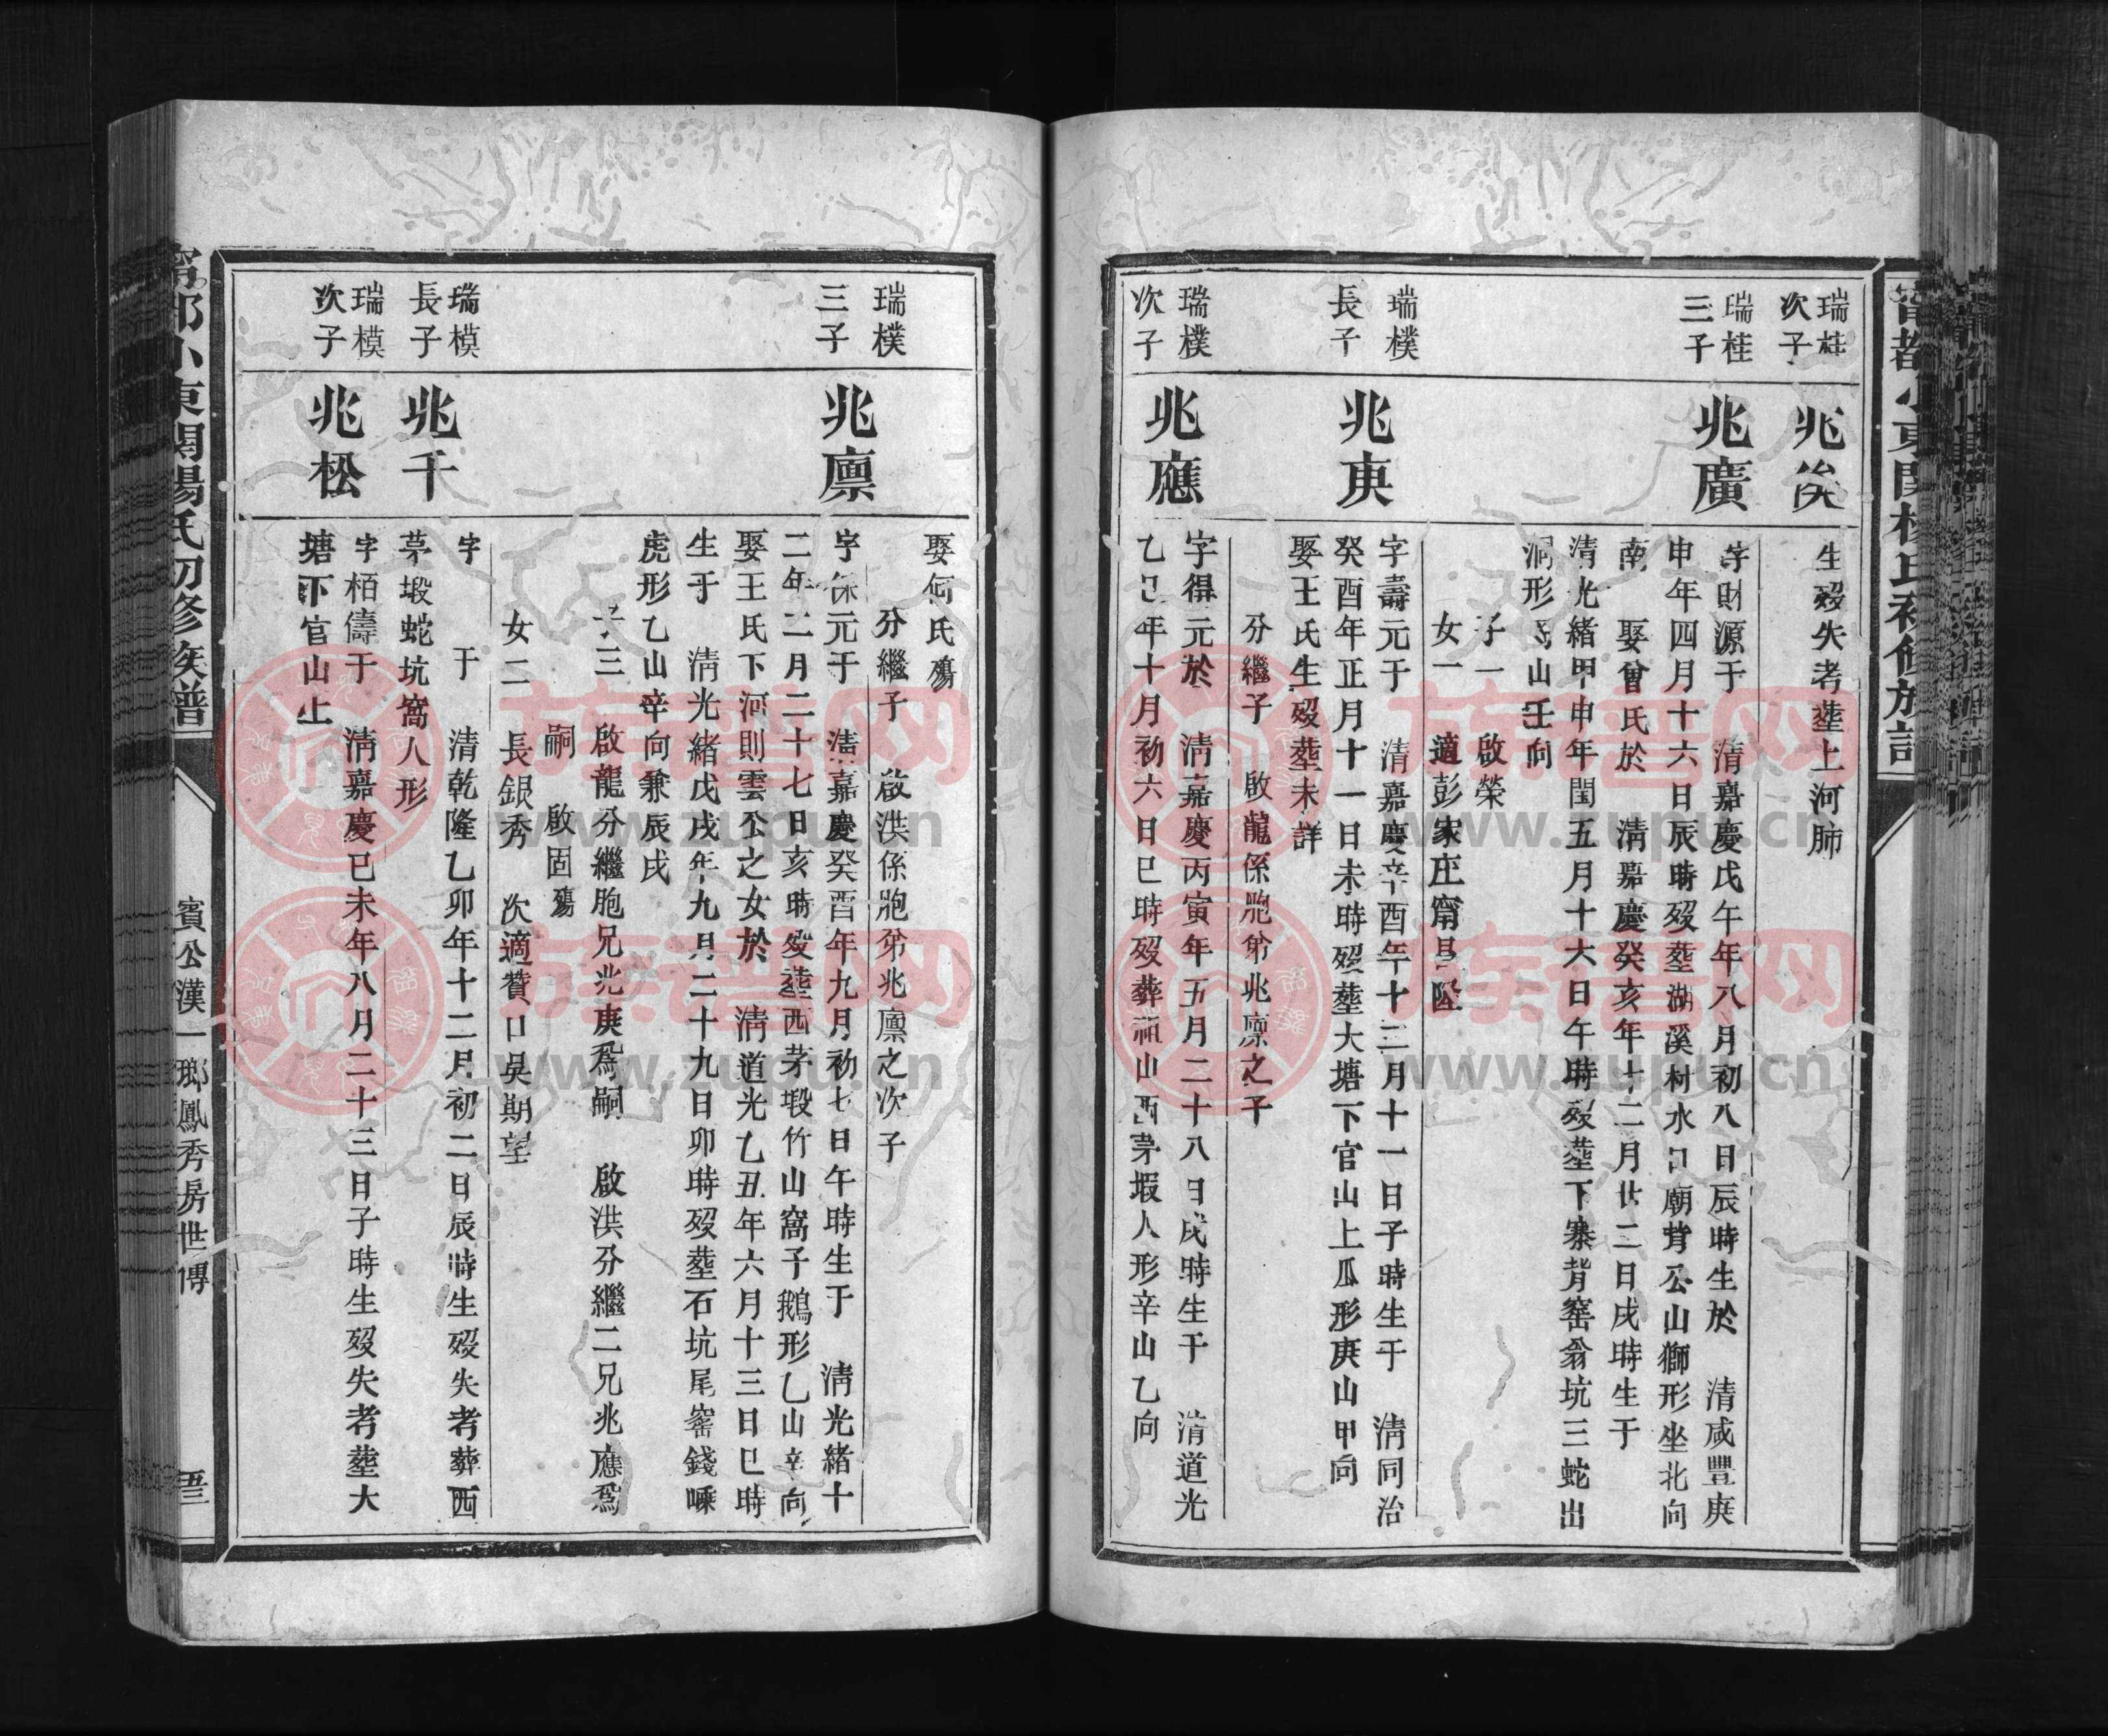 瑞桂
次子
兆俟
生歿失考塟上河肺
瑞桂
三子
兆廣
字財源于 清嘉慶戊午年八月初八日辰時生於 清咸豐庚
申年四月十六日辰時歿塟湖溪村水口廟背公山獅形坐北向
南 娶曾氏於 清嘉慶癸亥年十二月廿二日戌時生于
清光緒甲申年閏五月十六日午時歿塟下寨背窰翁坑三蛇出
洞形丙山壬向
子一 啟榮
女一 適彭家庄甯昌隆
瑞樸
長子
兆庚
字壽元于 清嘉慶辛酉年十二月十一日子時生于 清同治
癸酉年正月十一日未時歿塟大塘下官山上瓜形庚山甲向
娶王氏生歿塟未詳
分繼子 啟龍係胞弟兆廩之子
瑞樸
次子
兆應
字得元於 清嘉慶丙寅年五月二十八日戌時生于 清道光
乙巳年十月初六日巳時歿葬祖山西茅塅人形辛山乙向
娶何氏殤
分繼子 啟洪係胞弟兆廩之次子
瑞樸
三子
兆廩
字保元于 清嘉慶癸酉年九月初七日午時生于 清光緒十
二年二月二十七日亥時歿塟西茅塅竹山窩子鵝形乙山辛向
娶王氏下河則雲公之女於 清道光乙丑年六月十三日巳時
生于 清光緒戊戌年九月二十九日卯時歿塟石坑尾窰錢㟃
虎形乙山辛向兼辰戌
子三 啟龍分繼胞兄兆庚爲嗣 啟洪分繼二兄兆應爲
嗣 啟固殤
女二 長銀秀 次適贊口吳期望
瑞模
長子
兆千
字 于 清乾隆乙卯年十二月初二日辰時生歿失考葬西
茅塅蛇坑窩人形
瑞模
次子
兆松
字栢儔于 清嘉慶己未年八月二十三日子時生歿失考塟大
塘下官山上
甯都小東關楊氏初修族譜
賓公漢一瑯鳳秀房世傳
www.zupu.cn
族譜网
www.zupu.cn
族譜网
www.zupu.cn
族譜网
www.zupu.cn
族譜网